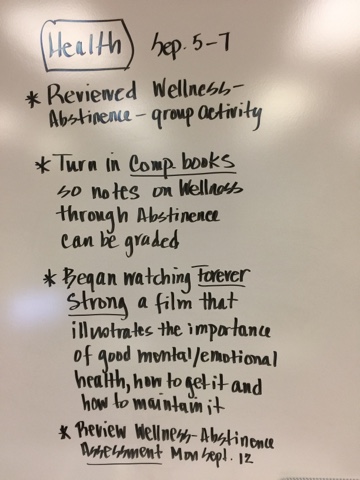 Health Sep. 5-7
* Reviewed Wellness-
Abstinence - group activity
* Turn in Comp. books
so notes on Wellness
through Abstinence
can be graded
* Began watching Forever
Strong a film that
illustrates the importance
of good mental/emotional
health, how to get it and
how to maintain it
* Review Wellness-Abstinence
Assessment Mon Sept. 12